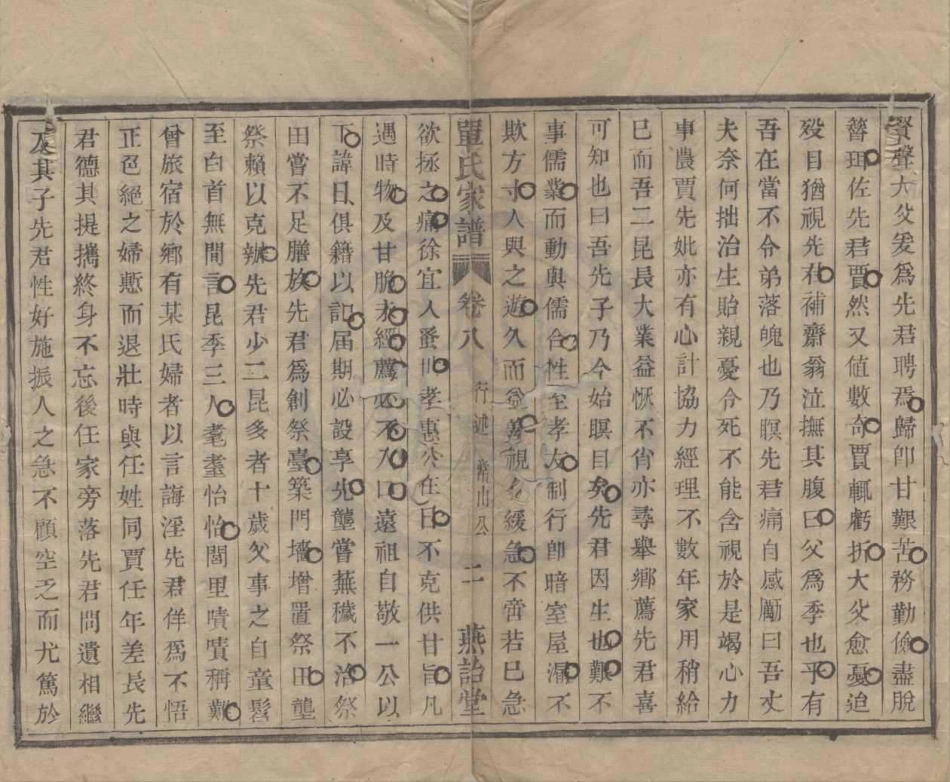 賢聲大父爰為先君聘焉歸卽甘艱苦務勤儉盡脫
簪珥佐先君賈然又值數奇賈輒虧折大父愈憂迫
歿目猶視先君補齋翁泣撫其腹曰父為季也乎有
吾在當不令弟落魄也乃瞑先君痛自感勵曰吾丈
夫奈何拙治生貽親憂令死不能含視於是竭心力
事農賈先妣亦有心計協力經理不數年家用稍給
已而吾二昆長大業益恢不肖亦尋舉鄉薦先君喜
可知也曰吾先子乃今始瞑目矣先君因生也艱不
事儒業而動與儒合性至孝友制行卽暗室屋漏不
欺方寸人與之遊久而益篤視人緩急不啻若已急
單氏家譜 卷八 行述 二 燕詒堂
欲拯之痛徐宜人蚤世孝惠公在日不克供甘旨凡
遇時物及甘脆未經薦必不入口遠祖自敬一公以
下諱日俱籍以記屆期必設享先壟嘗蕪穢不治祭
田嘗不足膳族先君為創祭臺築門墻增置祭田壟
祭賴以克辦先君少二昆多者十歲父事之自童髫
至白首無間言昆季三人耄耋怡怡閭里嘖嘖稱難
曾旅宿於鄉有某氏婦者以言誨淫先君佯為不悟
正色絕之婦慙而退壯時與任姓同賈任年差長先
君德其提攜終身不忘後任家旁落先君問遺相繼
及其子先君性好施振人之急不顧空乏而尤篤於